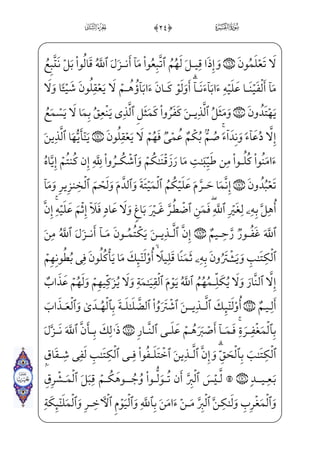 سُورَةُ البَقَرَةِ ﴿٢٤﴾ الجُزْءُ الثَّانِي
لَا تَعْلَمُونَ ١٦٩ وَإِذَا قِيلَ لَهُمُ ٱتَّبِعُوا۟ مَآ أَنزَلَ ٱللَّهُ قَالُوا۟ بَلْ نَتَّبِعُ
مَآ أَلْفَيْنَا عَلَيْهِ ءَابَآءَنَآ ۗ أَوَلَوْ كَانَ ءَابَآؤُهُمْ لَا يَعْقِلُونَ شَيْـًٔا وَلَا
يَهْتَدُونَ ١٧٠ وَمَثَلُ ٱلَّذِينَ كَفَرُوا۟ كَمَثَلِ ٱلَّذِى يَنْعِقُ بِمَا لَا يَسْمَعُ
إِلَّا دُعَآءً وَنِدَآءً ۚ صُمٌّۢ بُكْمٌ عُمْىٌ فَهُمْ لَا يَعْقِلُونَ ١٧١ يَـٰٓأَيُّهَا ٱلَّذِينَ
ءَامَنُوا۟ كُلُوا۟ مِن طَيِّبَـٰتِ مَا رَزَقْنَـٰكُمْ وَٱشْكُرُوا۟ لِلَّهِ إِن كُنتُمْ إِيَّاهُ
تَعْبُدُونَ ١٧٢ إِنَّمَا حَرَّمَ عَلَيْكُمُ ٱلْمَيْتَةَ وَٱلدَّمَ وَلَحْمَ ٱلْخِنزِيرِ وَمَآ
أُهِلَّ بِهِۦ لِغَيْرِ ٱللَّهِ ۖ فَمَنِ ٱضْطُرَّ غَيْرَ بَاغٍ وَلَا عَادٍ فَلَآ إِثْمَ عَلَيْهِ ۚ إِنَّ
ٱللَّهَ غَفُورٌ رَّحِيمٌ ١٧٣ إِنَّ ٱلَّذِينَ يَكْتُمُونَ مَآ أَنزَلَ ٱللَّهُ مِنَ
ٱلْكِتَـٰبِ وَيَشْتَرُونَ بِهِۦ ثَمَنًا قَلِيلًا ۙ أُو۟لَـٰٓئِكَ مَا يَأْكُلُونَ فِى بُطُونِهِمْ
إِلَّا ٱلنَّارَ وَلَا يُكَلِّمُهُمُ ٱللَّهُ يَوْمَ ٱلْقِيَـٰمَةِ وَلَا يُزَكِّيهِمْ وَلَهُمْ عَذَابٌ
أَلِيمٌ ١٧٤ أُو۟لَـٰٓئِكَ ٱلَّذِينَ ٱشْتَرَوُا۟ ٱلضَّلَـٰلَةَ بِٱلْهُدَىٰ وَٱلْعَذَابَ
بِٱلْمَغْفِرَةِ ۚ فَمَآ أَصْبَرَهُمْ عَلَى ٱلنَّارِ ١٧٥ ذَٰلِكَ بِأَنَّ ٱللَّهَ نَزَّلَ
ٱلْكِتَـٰبَ بِٱلْحَقِّ ۗ وَإِنَّ ٱلَّذِينَ ٱخْتَلَفُوا۟ فِى ٱلْكِتَـٰبِ لَفِى شِقَاقٍۭ
بَعِيدٍ ١٧٦ ۞ لَّيْسَ ٱلْبِرَّ أَن تُوَلُّوا۟ وُجُوهَكُمْ قِبَلَ ٱلْمَشْرِقِ
وَٱلْمَغْرِبِ وَلَـٰكِنَّ ٱلْبِرَّ مَنْ ءَامَنَ بِٱللَّهِ وَٱلْيَوْمِ ٱلْـَٔاخِرِ وَٱلْمَلَـٰٓئِكَةِ